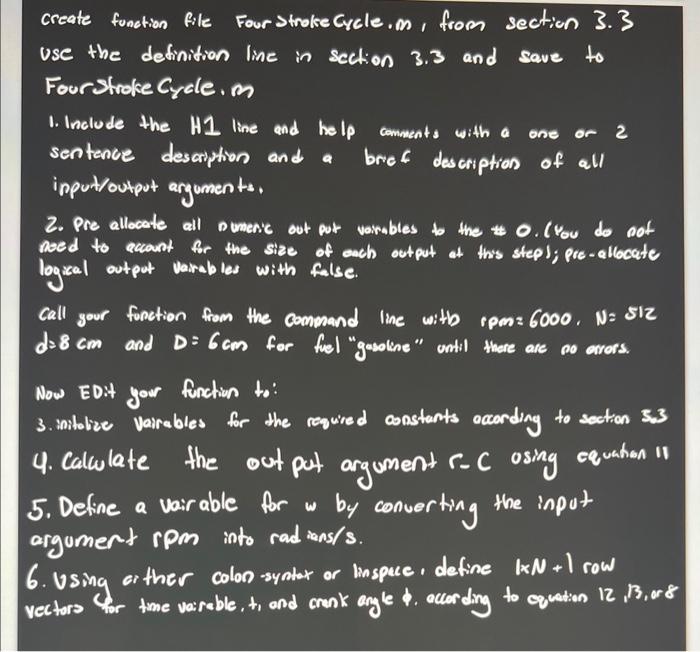 create function file FourStrokeCycle.m, from section 3.3
Use the definition line in section 3.3 and save to
FourStrokeCycle.m
1. Include the H1 line and help comments with a one or 2
sentence description and a brief description of all
input/output arguments.
2. Pre allocate all numeric out put vairables to the # 0. (You do not
need to account for the size of each output at this step); pre-allocate
logical output vairables with false.
Call your function from the command line with rpm=6000, N=512
d=8 cm and D=6cm for fuel "gasoline" until there are no errors.
Now EDit your function to:
3. initalize vairables for the required constants according to section 3.3
4. Calculate the out put argument r_C using equation 11
5. Define a vairable for w by converting the input
argument rpm into radians/s.
6. Using either colon-syntax or linspace, define 1xN+1 row
vectors for time vairable, t, and crank angle ϕ. according to equation 12, 13, or 8